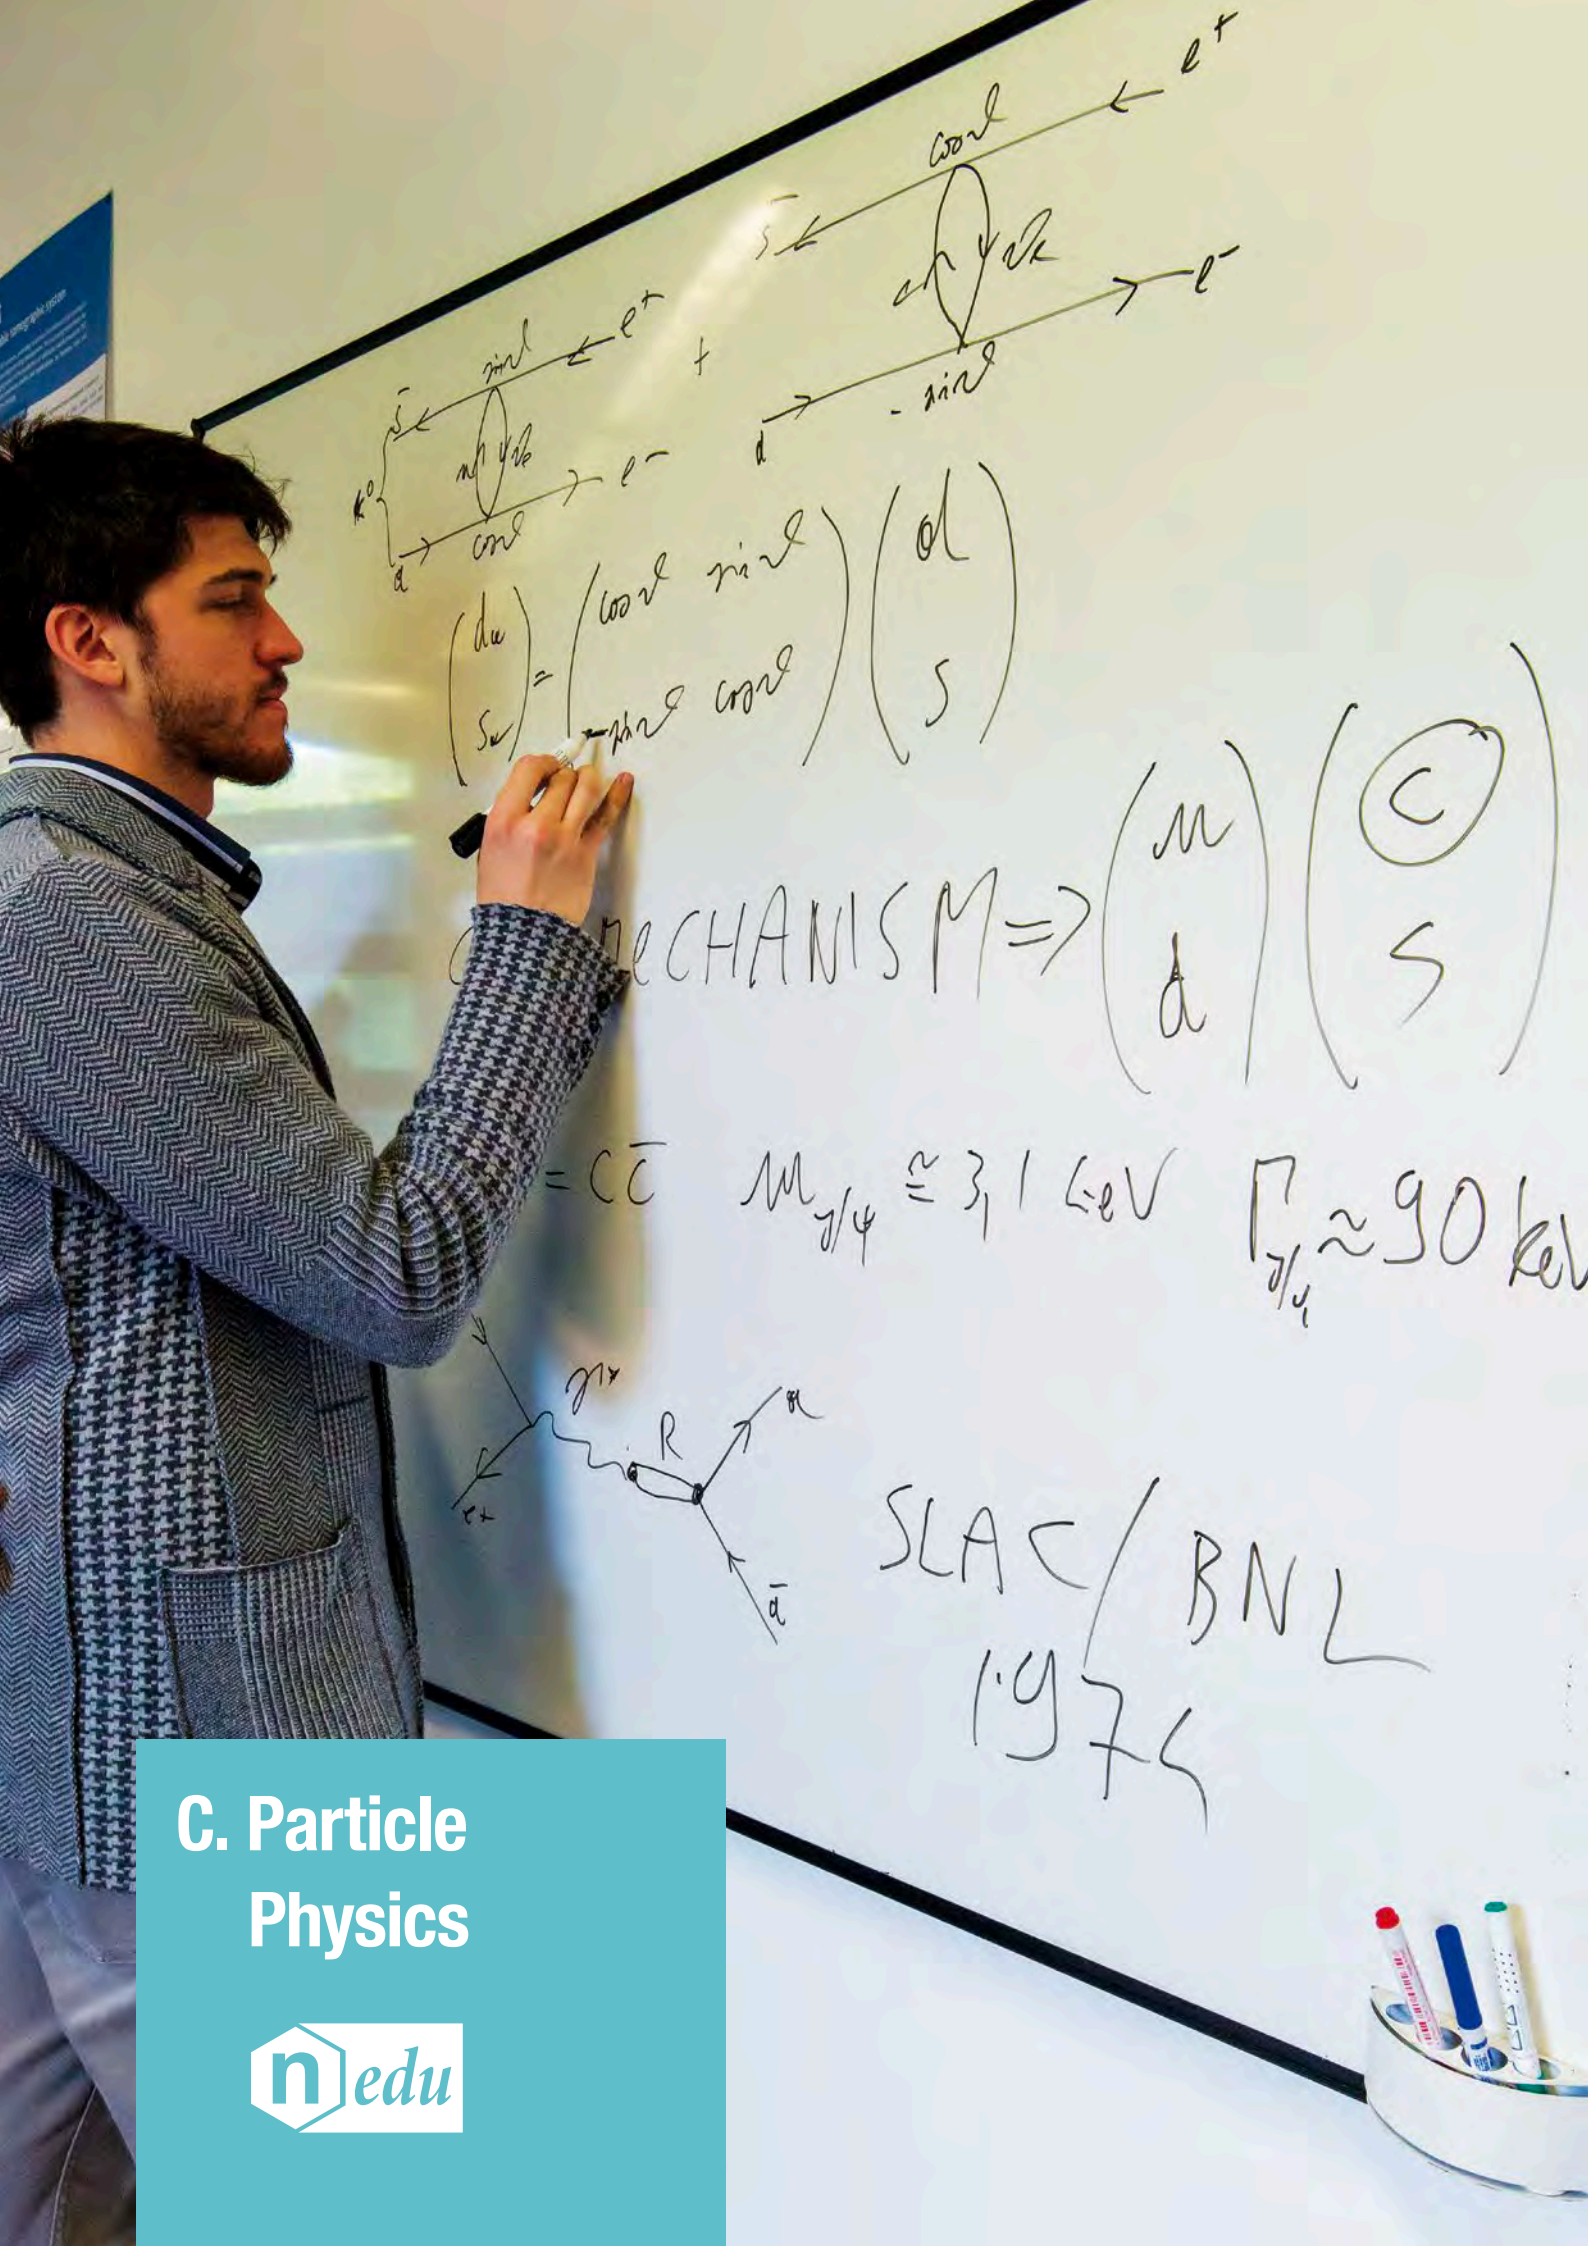 e⁺
cosϑ
s̄
e⁺
+
sinϑ
e⁻
s̄
K⁰
e⁻
- sinϑ
d
cosϑ
d
(cosϑ sinϑ) (d
=
-sinϑ cosϑ) s)
MeCHANISM => (u d) (c s)
= cc̄ m J/ψ ≅ 3,1 GeV Γ J/ψ ≈ 90 keV
γ*
R
SLAC / BNL
1974
C. Particle
Physics
n edu